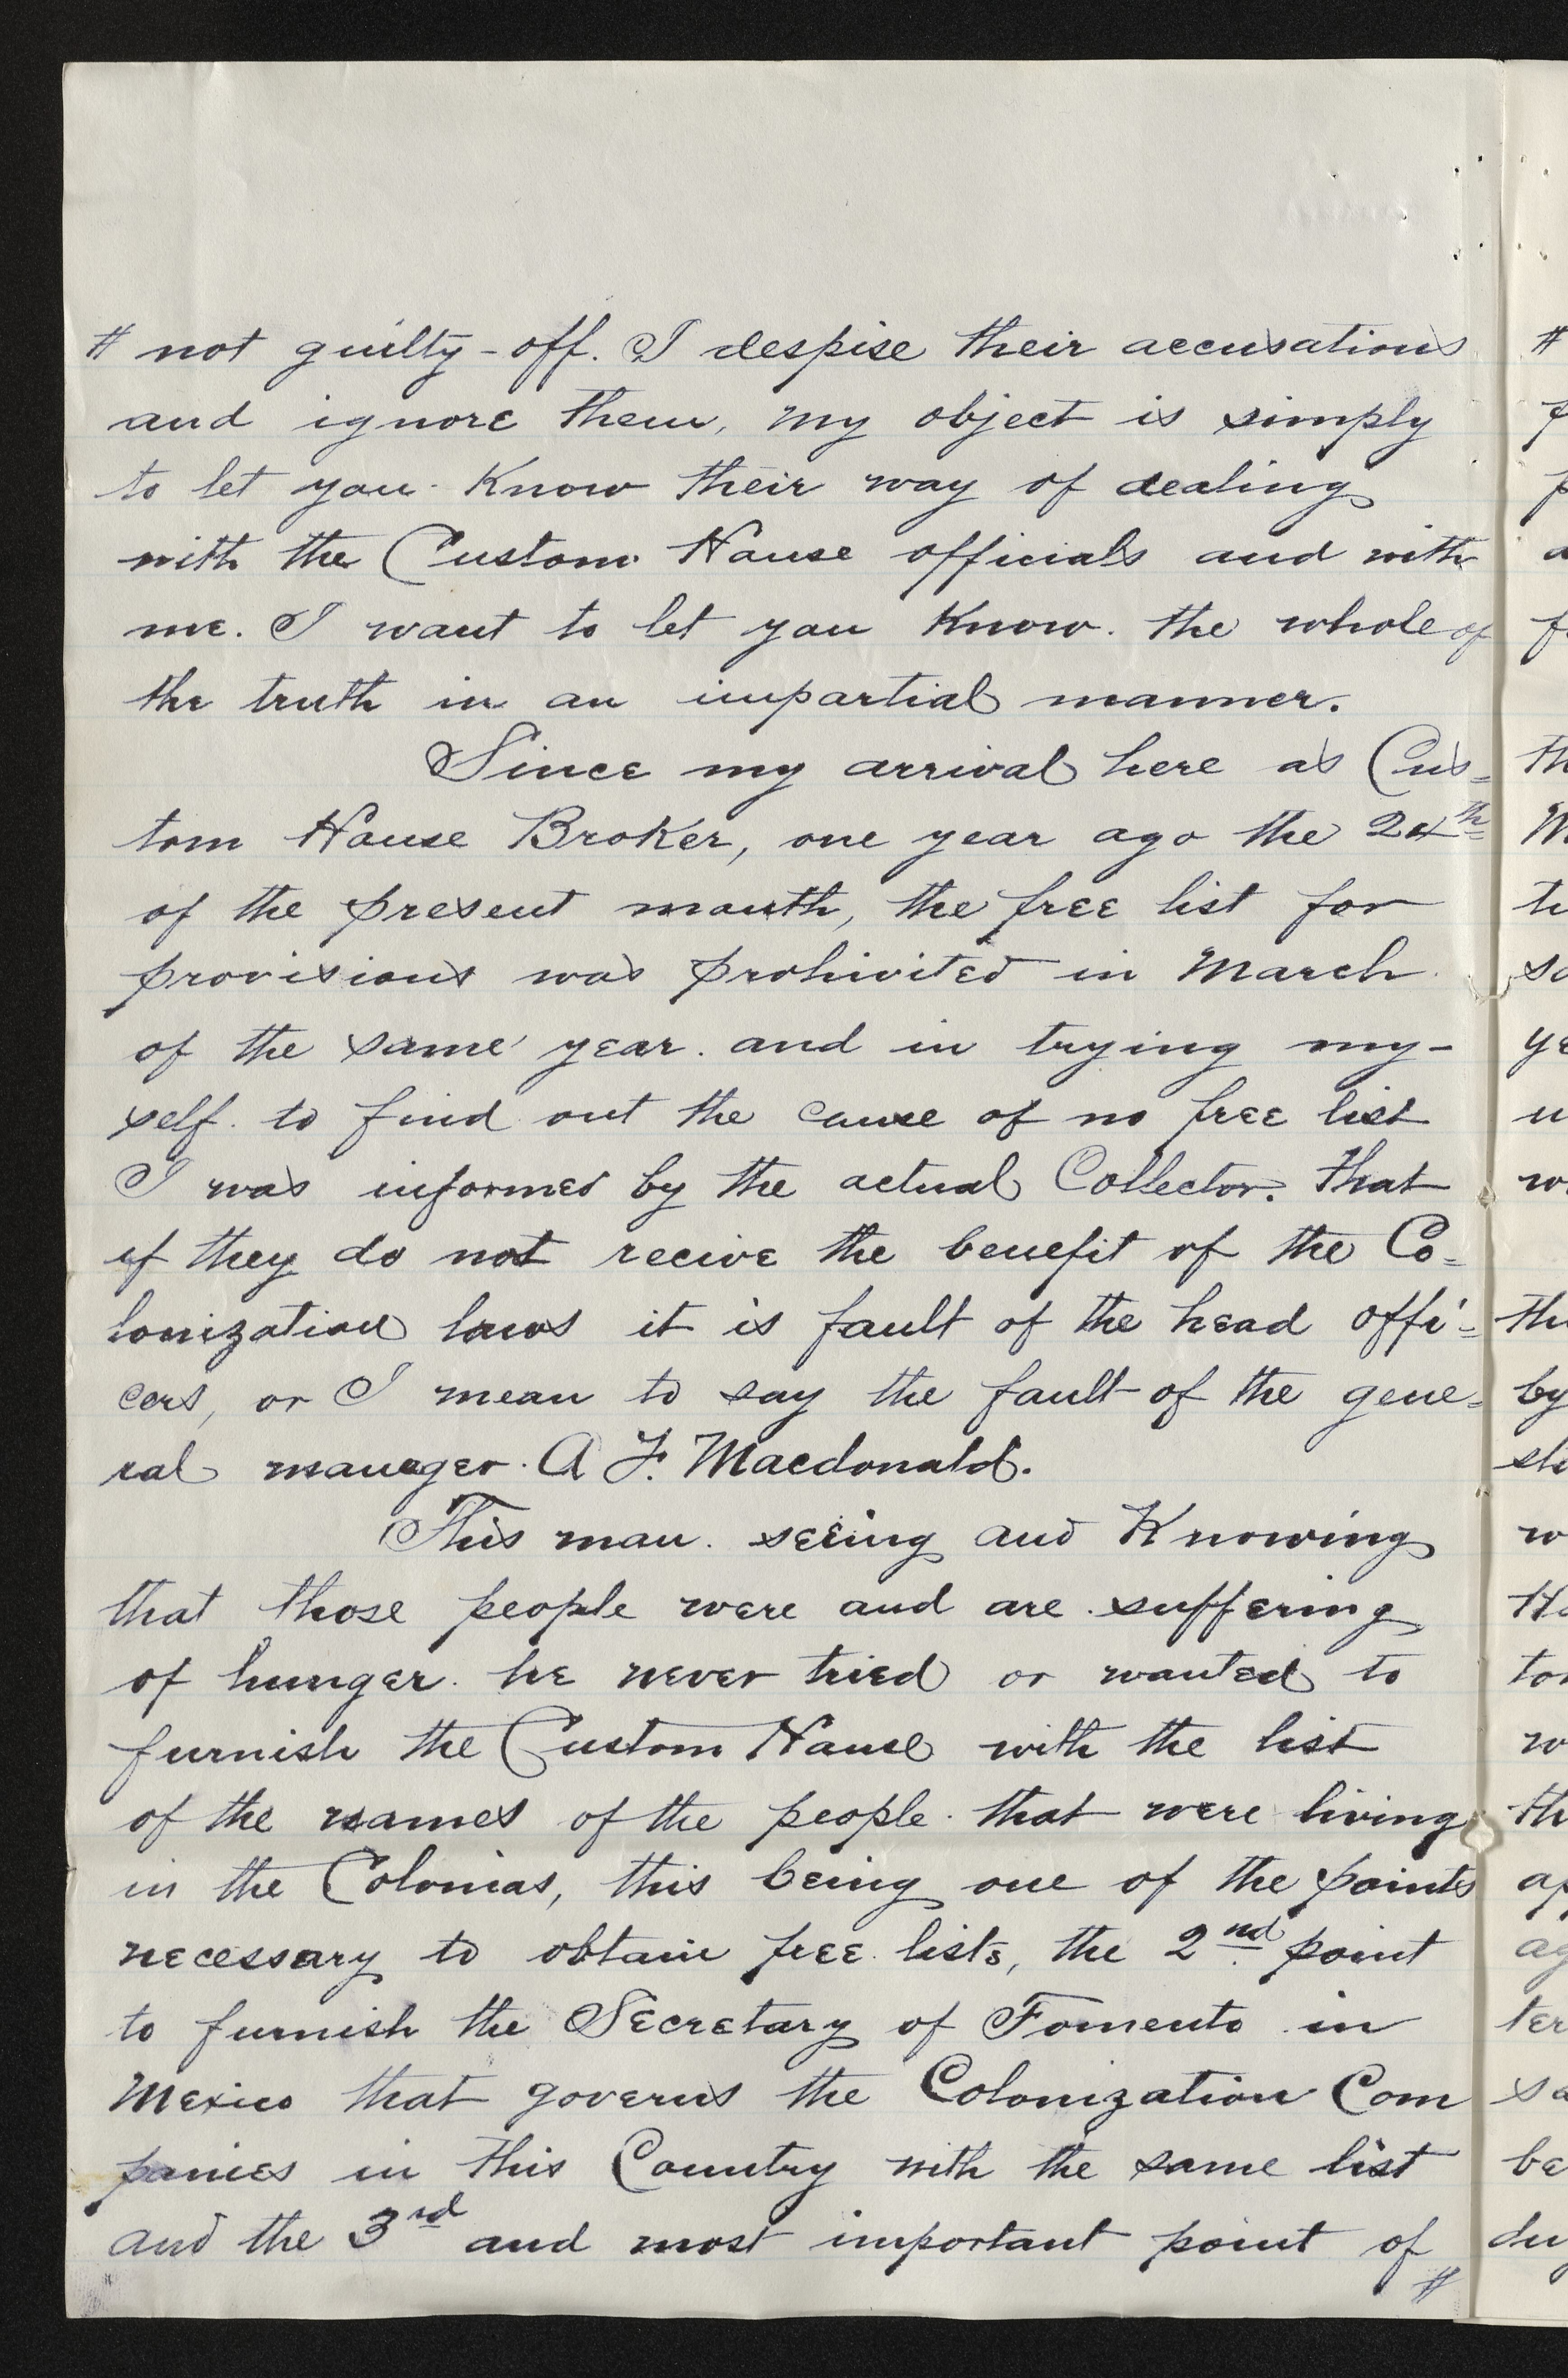 # not guilty-off. I despise their accusations
and ignore them, my object is simply
to let you Know their way of dealing
with the Custom House officials and with
me. I want to let you Know. the whole of
the truth in an impartial manner.
Since my arrival here as Cus=
tom House Broker, one year ago the 24th
of the present month, the free list for
provisions was prohivited in March
of the same year. and in trying my-
self. to find out the cause of no free list
I was informed by the actual Collector. that
if they do not recive the benefit of the Co=
lonization laws it is fault of the head offi=
cers, or I mean to say the fault of the gene=
ral manager. A F. Macdonald.
This man. seeing and Knowing
that those people were and are suffering
of hunger. he never tried or wanted to
furnish the Custom House with the list
of the names of the people that were living
in the Colonias, this being one of the points
necessary to obtain free lists, the 2nd point
to furnish the Secretary of Fomento in
Mexico that governs the Colonization Com
panies in this Country with the same list
and the 3rd and most important point of
#